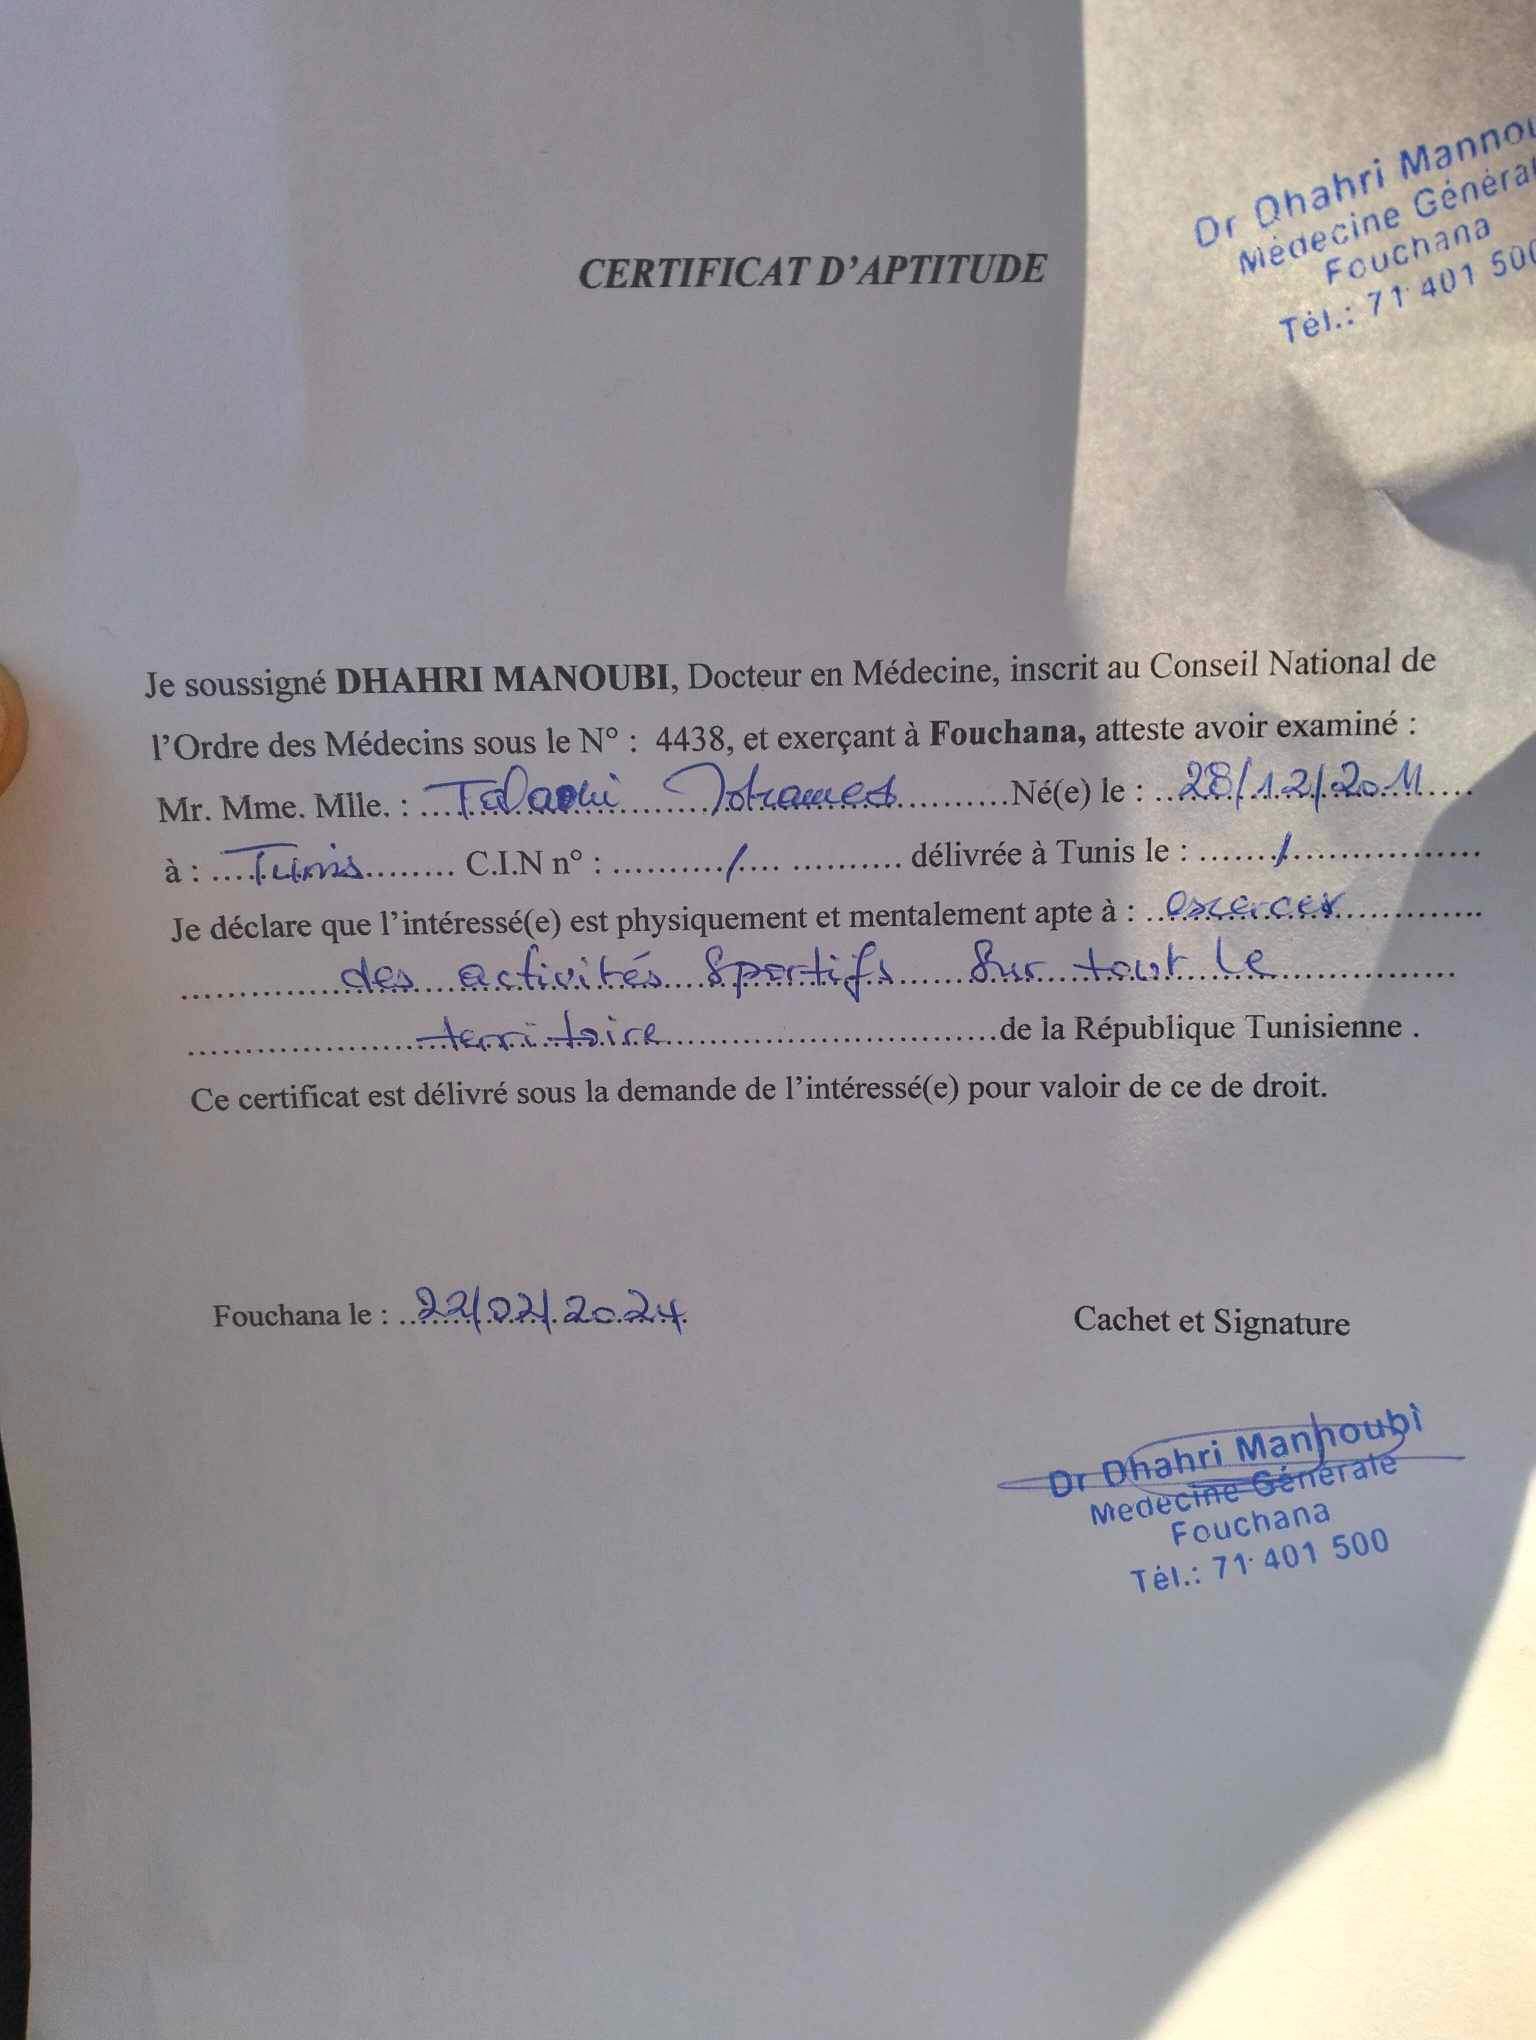 Dr Dhahri Mannou
Médecine Général
Fouchana
Tél.: 71 401 500
CERTIFICAT D'APTITUDE
Je soussigné DHAHRI MANOUBI, Docteur en Médecine, inscrit au Conseil National de
l'Ordre des Médecins sous le N° : 4438, et exerçant à Fouchana, atteste avoir examiné :
Mr. Mme. Mlle. : Mohamed Né(e) le : 28/12/2011
à : Tunis C.I.N n° : / délivrée à Tunis le : /
Je déclare que l'intéressé(e) est physiquement et mentalement apte à : excercer
des activités Sportifs Sur tout le
territoire de la République Tunisienne .
Ce certificat est délivré sous la demande de l'intéressé(e) pour valoir de ce de droit.
Fouchana le : 22/02/2024
Cachet et Signature
Dr Dhahri Mannoubi
Médecine Générale
Fouchana
Tél.: 71 401 500